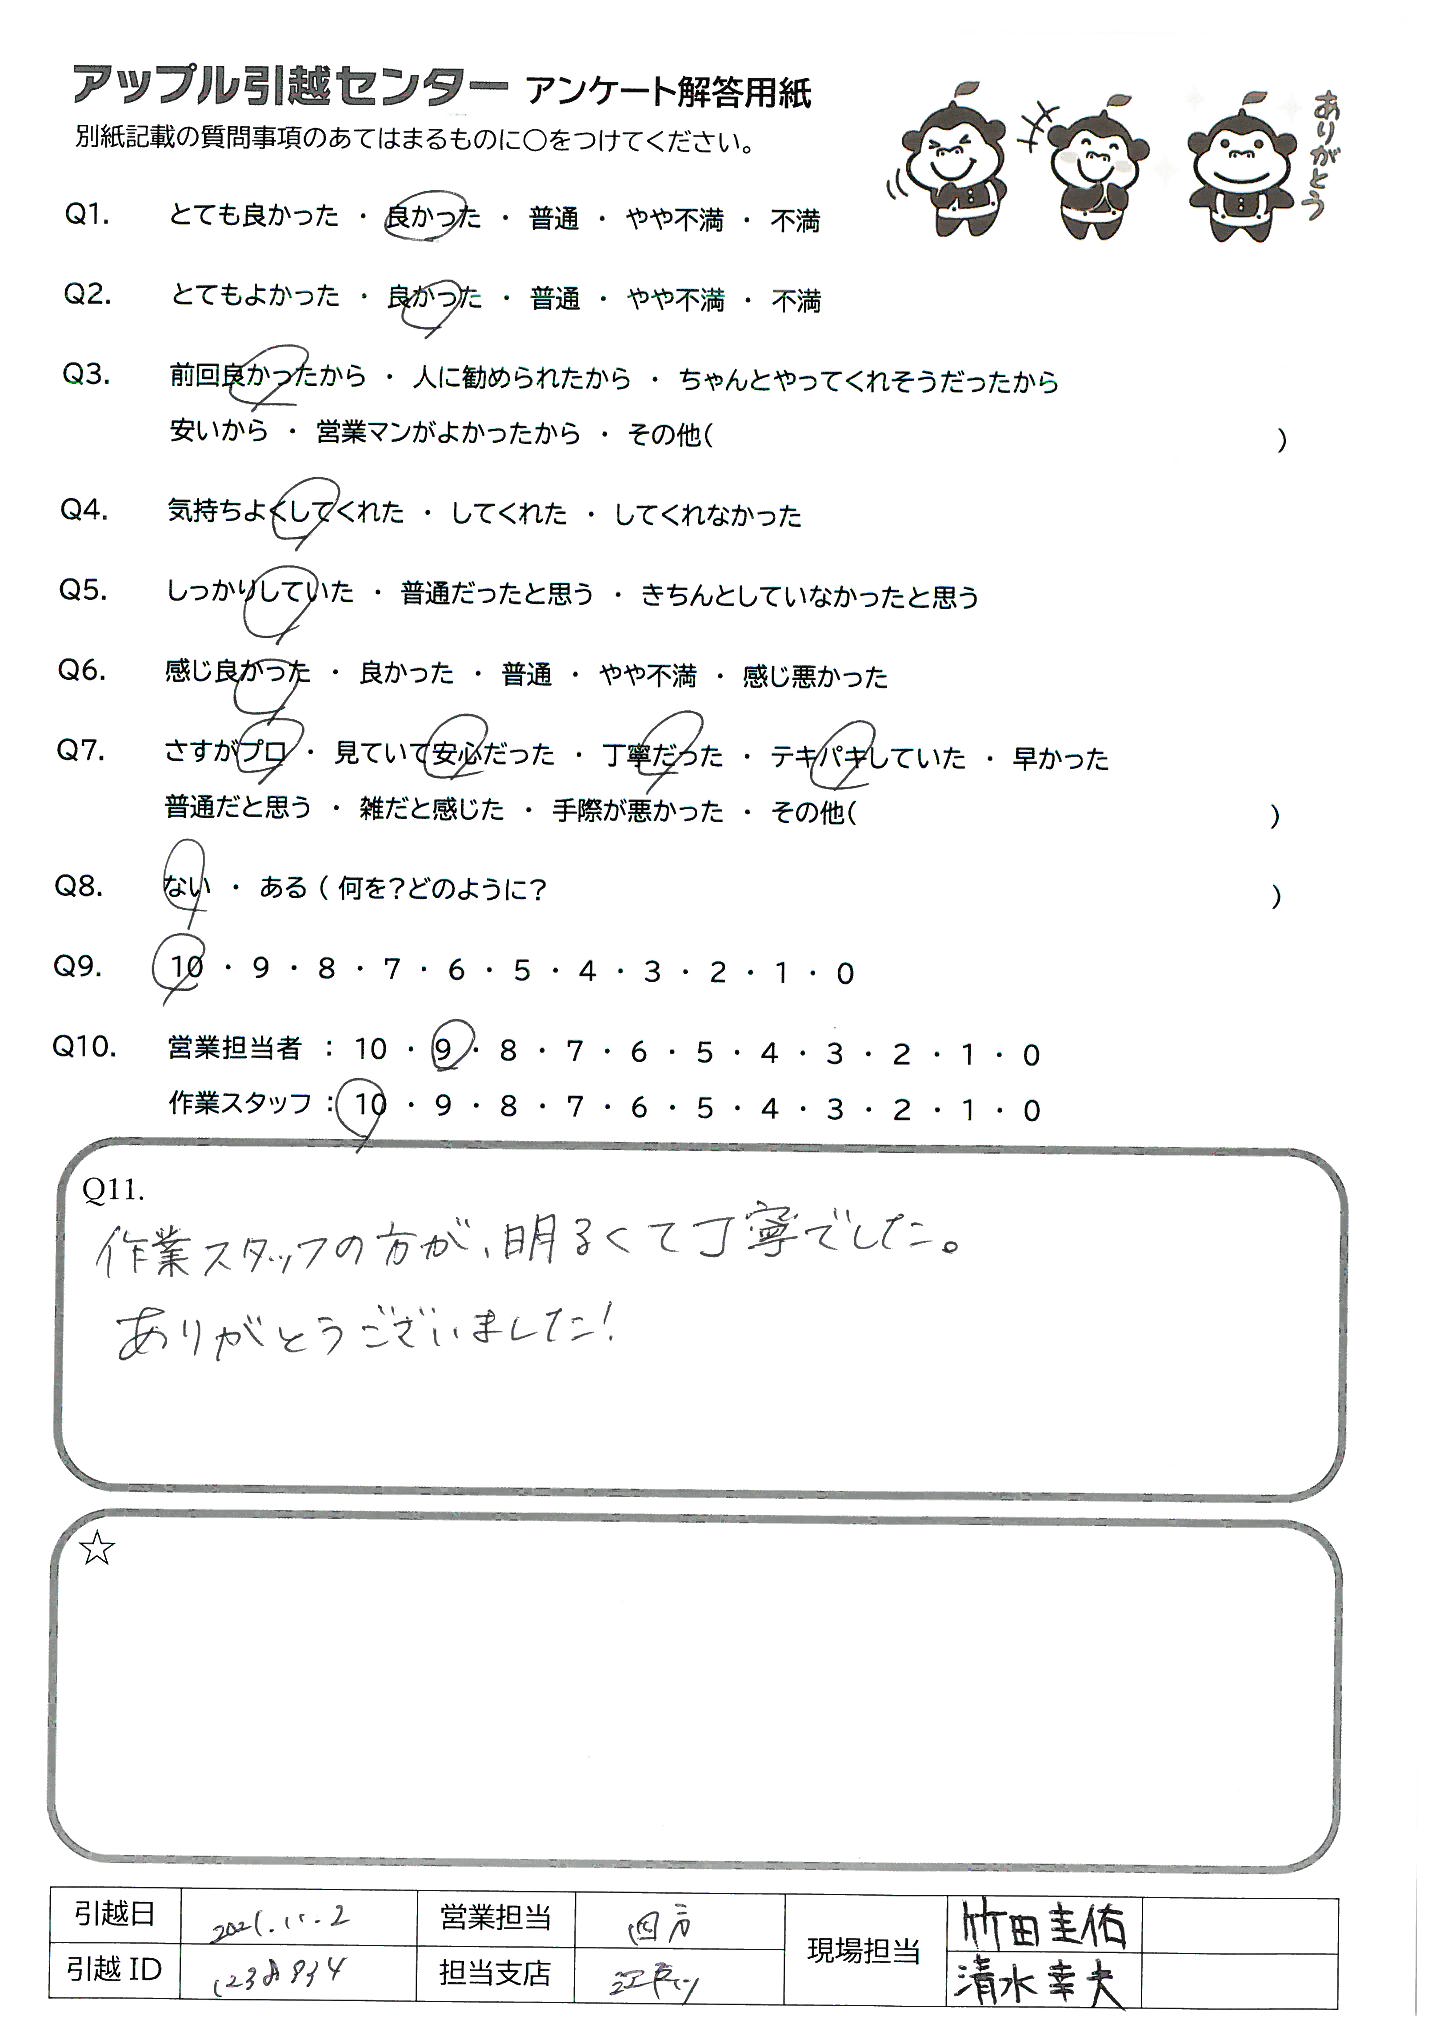 アップル引越センター アンケート解答用紙
ありがとう
別紙記載の質問事項のあてはまるものに○をつけてください。
Q1. とても良かった ・ 良かった ・ 普通 ・ やや不満 ・ 不満
Q2. とてもよかった ・ 良かった ・ 普通 ・ やや不満 ・ 不満
Q3. 前回良かったから ・ 人に勧められたから ・ ちゃんとやってくれそうだったから
安いから ・ 営業マンがよかったから ・ その他( )
Q4. 気持ちよくしてくれた ・ してくれた ・ してくれなかった
Q5. しっかりしていた ・ 普通だったと思う ・ きちんとしていなかったと思う
Q6. 感じ良かった ・ 良かった ・ 普通 ・ やや不満 ・ 感じ悪かった
Q7. さすがプロ ・ 見ていて安心だった ・ 丁寧だった ・ テキパキしていた ・ 早かった
普通だと思う ・ 雑だと感じた ・ 手際が悪かった ・ その他( )
Q8. ない ・ ある ( 何を?どのように? )
Q9. 10 ・ 9 ・ 8 ・ 7 ・ 6 ・ 5 ・ 4 ・ 3 ・ 2 ・ 1 ・ 0
Q10. 営業担当者 : 10 ・ 9 ・ 8 ・ 7 ・ 6 ・ 5 ・ 4 ・ 3 ・ 2 ・ 1 ・ 0
作業スタッフ : 10 ・ 9 ・ 8 ・ 7 ・ 6 ・ 5 ・ 4 ・ 3 ・ 2 ・ 1 ・ 0
Q11.
作業スタッフの方が、明るくて丁寧でした。
ありがとうございました!
☆
引越日 営業担当 四方 現場担当 竹田圭佑
引越ID 担当支店 清水幸夫